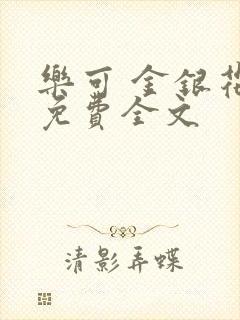 樂可 金銀花
免費全文
清影弄蝶